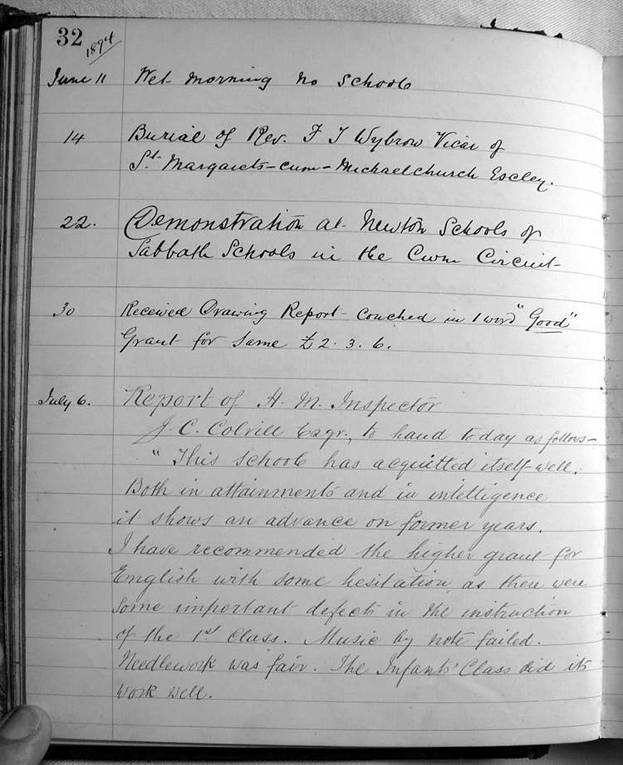 32 1894
June 11 Wet morning no School
14 Burial of Rev. F J Wybrow Vicar of
St. Margarets-cum-Michaelchurch Escley.
22. Demonstration at Newton Schools of
Sabbath Schools in the Cwm Circuit
30 Received Drawing Report - couched in 1 word "Good"
Grant for same £2.3.6.
July 6. Report of H. M. Inspector
J. C. Colvill Esqr., to hand today as follows-
"This School has acquitted itself well.
Both in attainments and in intelligence
it shows an advance on former years.
I have recommended the higher grant for
English with some hesitation, as there were
some important defects in the instruction
of the 1st Class. Music by note failed.
Needlework was fair. The Infants' Class did its
work well.